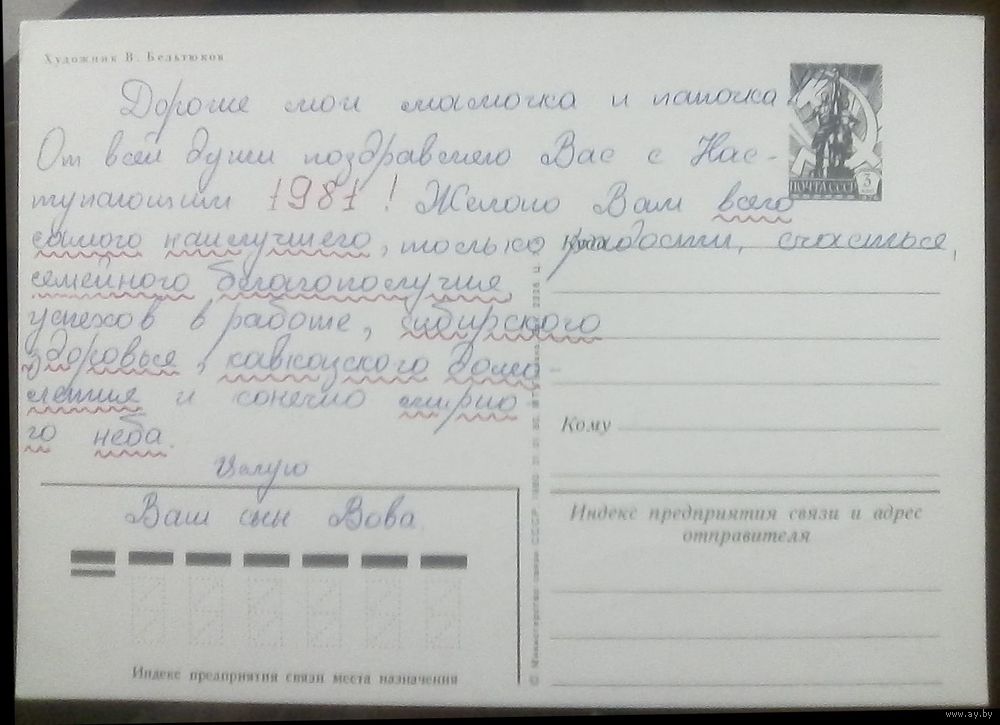 Художник В. Бельтюков
Дорогие мои мамочка и папочка
От всей души поздравляю Вас с Нас-
тупающим 1981! Желаю Вам всего
самого наилучшего, только радости, счастья,
семейного благополучия,
успехов в работе, сибирского
здоровья, кавказского долго-
летия и конечно мирно
го неба.
Целую
Ваш сын Вова.
ПОЧТА СССР 3
Куда
Кому
Индекс предприятия связи и адрес
отправителя
Индекс предприятия связи места назначения
© Министерство связи СССР. 1980
www.ay.by